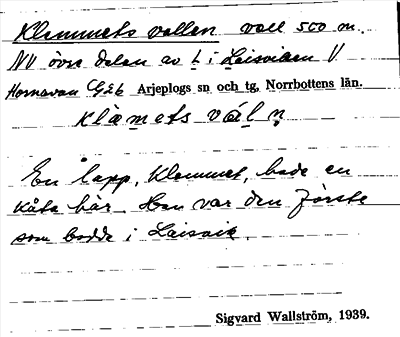 Klemmets vallen vall 500 m.
NV övre delen av L i Laisviken V
Hornavan G2b Arjeplogs sn och tg, Norrbottens län.
klämets våln
En lapp, Klemmet, hade en
kåta här. Han var den förste
som bodde i Laisvik.
Sigvard Wallström, 1939.